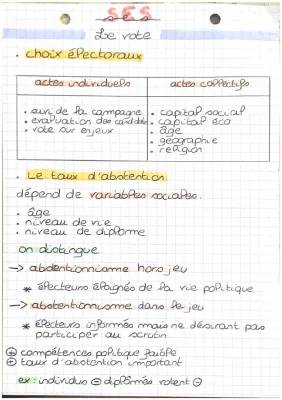 SES
Le vote
. choix électoraux
actes individuels
actes collectifs
. suivi de la campagne
. évaluation des candidats
. vote sur enjeux
. capital social
. capital eco
. âge
. géographie
. religion
. Le taux d'abstention
dépend de variables sociales.
. âge
. niveau de vie
. niveau de diplôme
on distingue
→ abstentionnisme hors jeu
* électeurs éloignés de la vie politique
→ abstentionnisme dans le jeu
* électeurs informés mais ne désirant pas
participer au scrutin
⊕ compétences politique faible
⊕ taux d'abstention important
ex: individus ⊖ diplômés votent ⊖